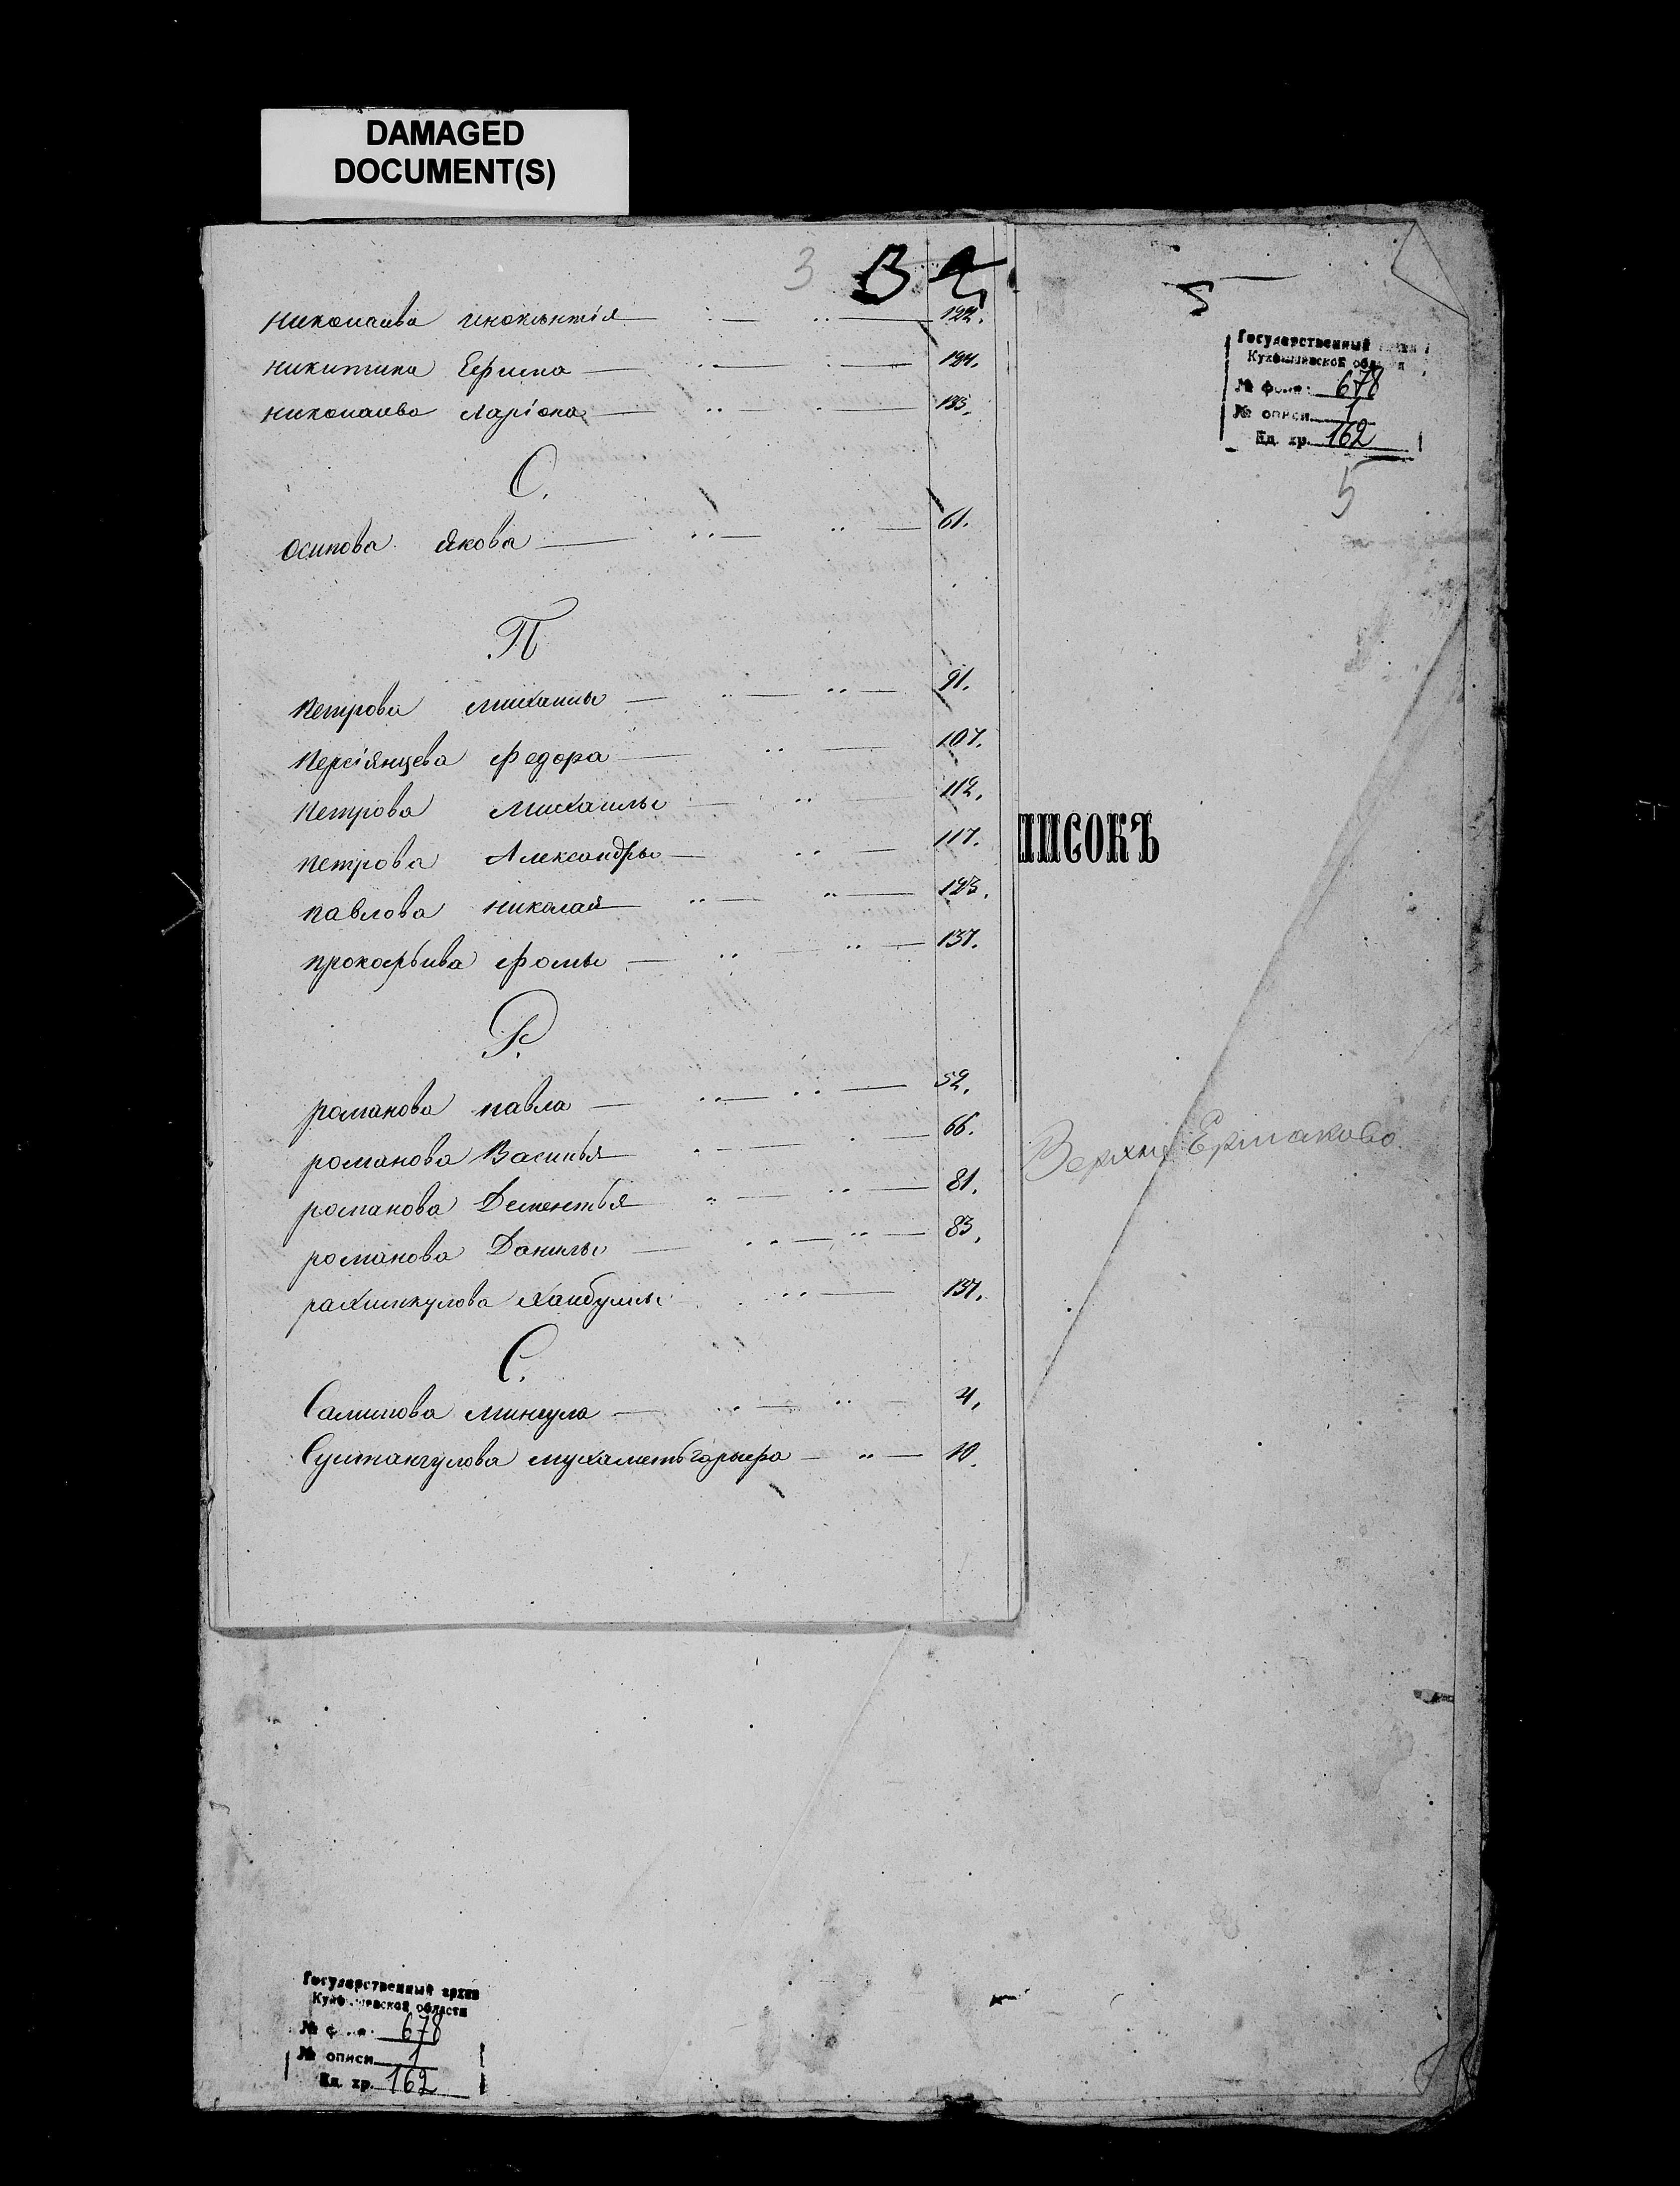 DAMAGED
DOCUMENT(S)
3
Николаева Инокентія 122.
Никитина Ефима 124.
Николаева Ларіона 133.
О.
Осипова Якова 61.
П
Петрова Михаилы 91.
Персіянцева Федора 107.
Петрова Михаилы 112.
Петрова Александры 117.
Павлова Николая 123.
Прокофьива Фомы 137.
Р.
Романова Павла 52.
Романова Василья 66.
Романова Дементья 81.
Романова Данилы 83.
Рахимкулова Хайбуллы 137.
С.
Салимова Мингула 4.
Султангулова Мухаметьгарыфа 10.
5
Государственный архив
Куйбышевской области
№ фонда 678
№ описи 1
Ед. хр. 162
5
ПИСОКЪ
Верхне Ермаково
Государственный архив
Куйбышевской области
№ фонда 678
№ описи 1
Ед. хр. 162